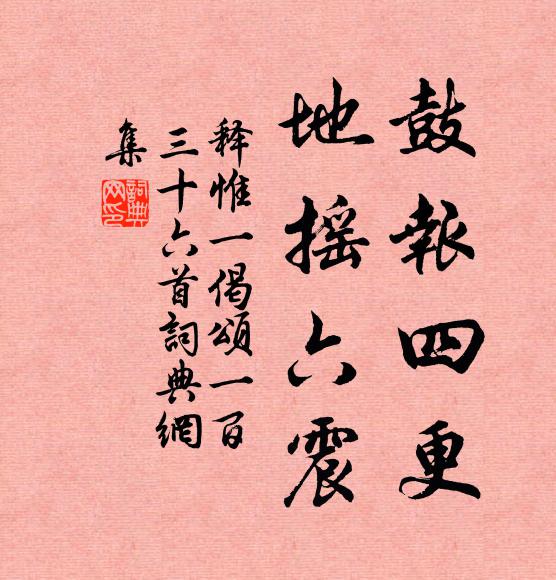 鼓報四更
地摇六震
释惟一偈頌一百
三十六首詞典網
集
詞典
网印